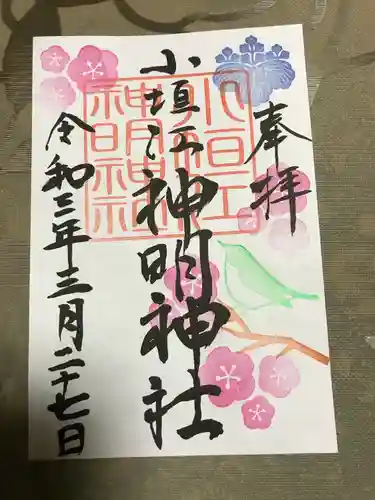 奉拝
小垣江神明神社
小垣江神明神社
令和三年三月二十七日